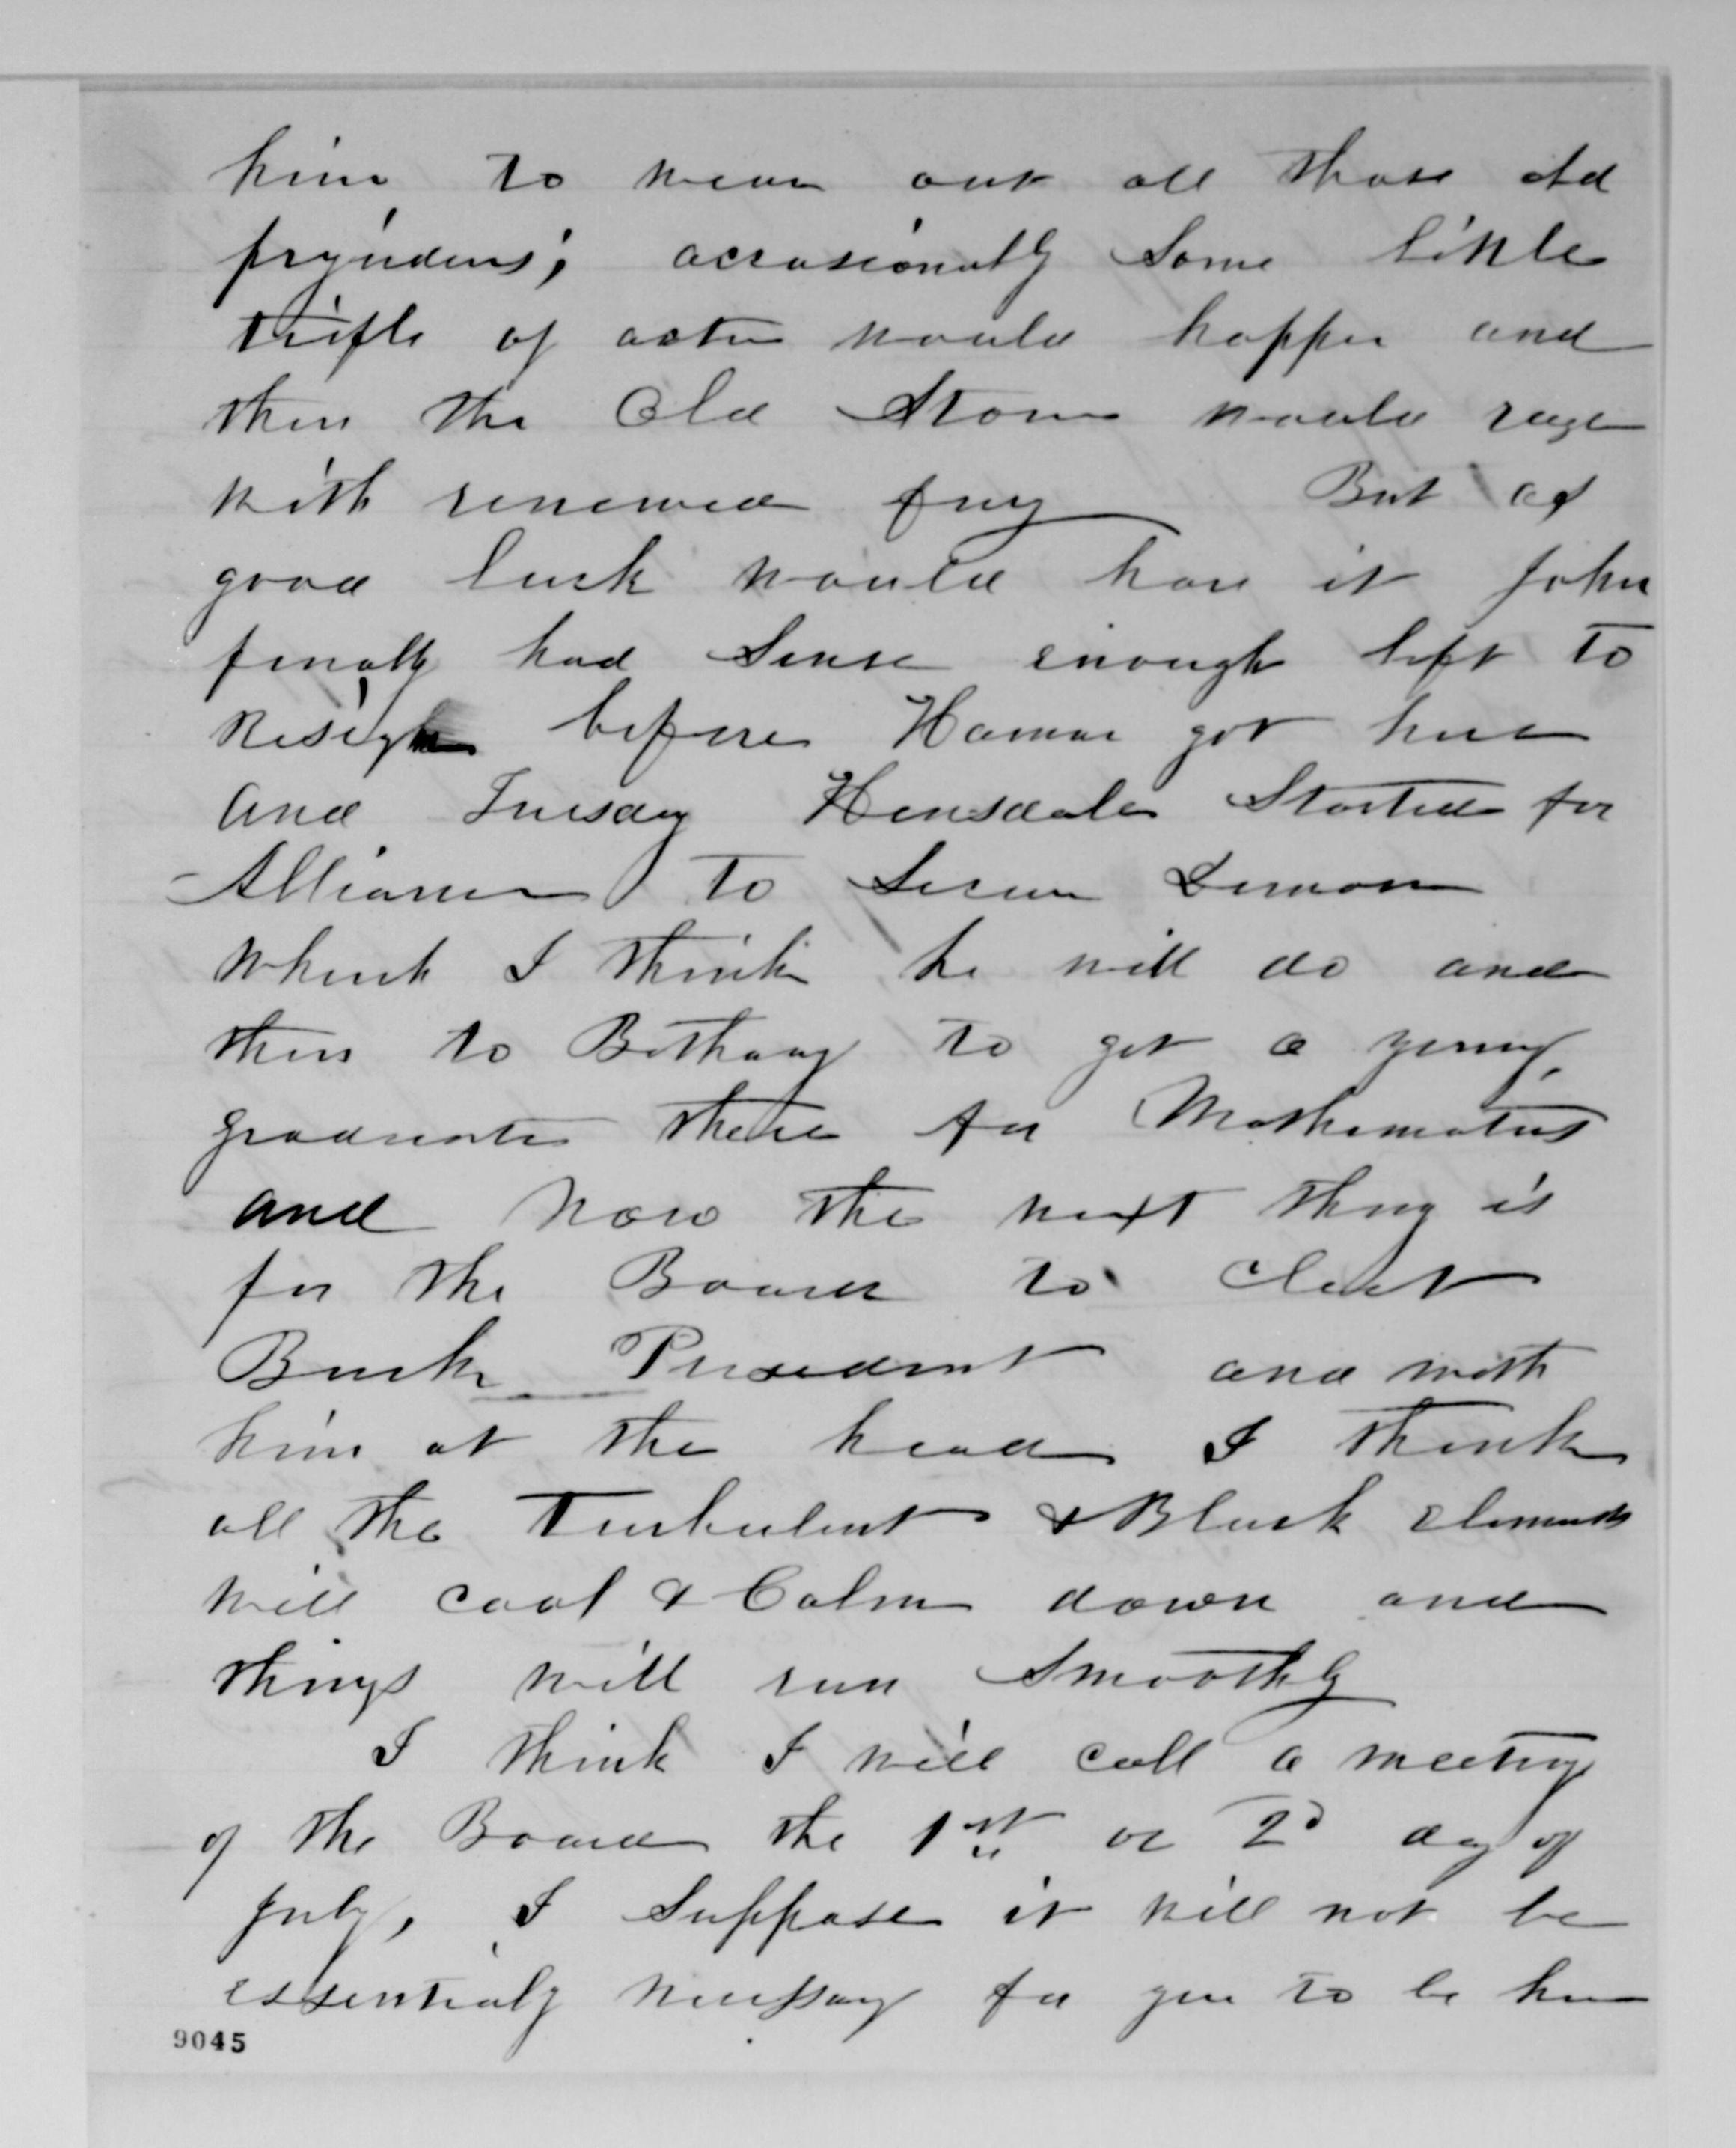 him to wear out all those old
prejudices; occasionally some little
trifle of action would happen and
then the Old Storm would rage
with renewed fury But as
good luck would have it John
finally had sense enough left to
Resign before Harmar got here
And Tuesday Hinsdale Started for
Alliance to Secure
which I think he will do and
then to Bethany to get a young
graduate there for Mathematics
and now the next thing is
for the Board to Elect
Burke President and with
him at the head I think
all the Turbulent & Black elements
will cool & Calm down and
things will run Smoothly
I think I will call a meeting
of the Board the 1st or 2d day of
July, I Suppose it will not be
essentialy necessary for you to be here
9045